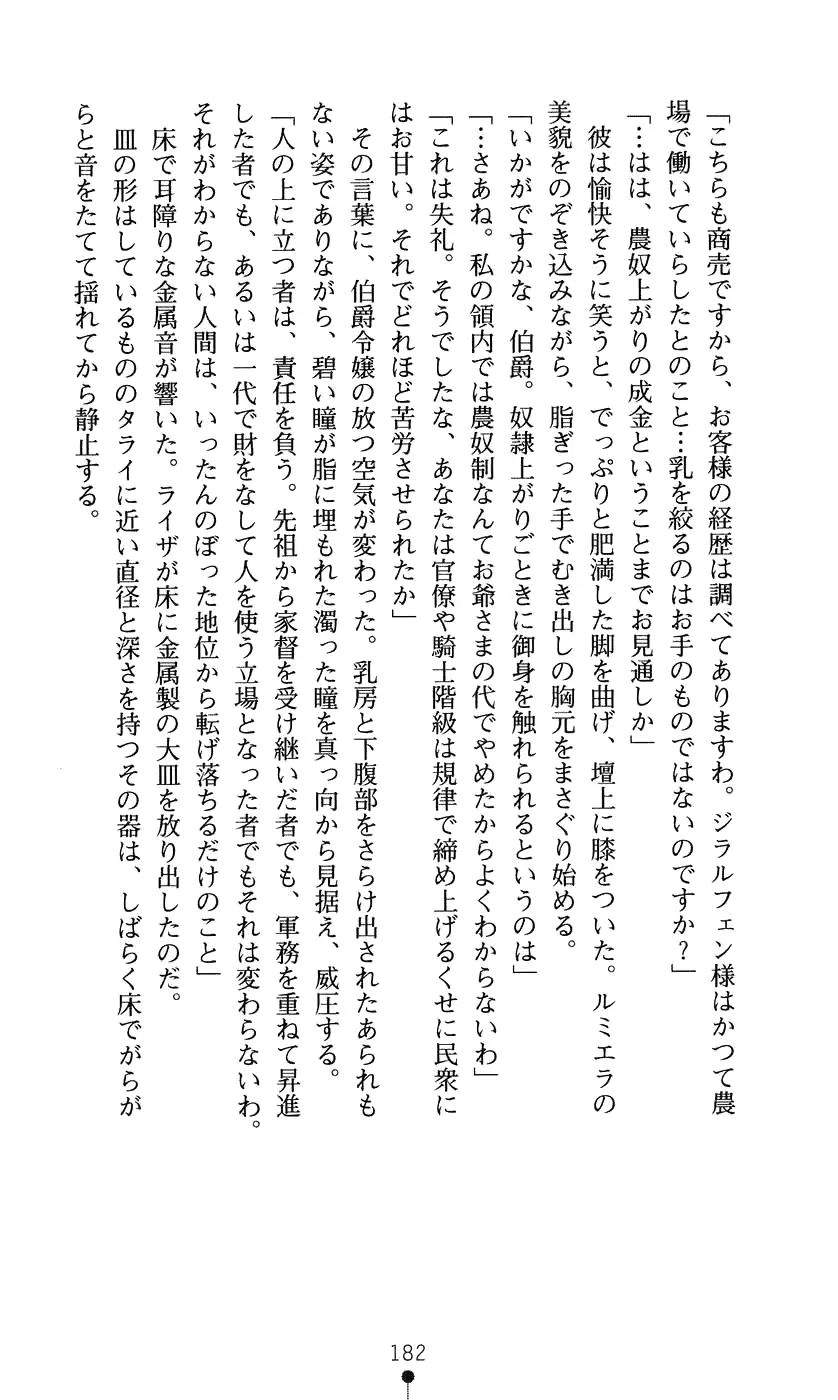 「こちらも商売ですから、お客様の経歴は調べてありますわ。ジラルフェン様はかつて農
場で働いていらしたとのこと…乳を絞るのはお手のものではないのですか？」
「…はは、農奴上がりの成金ということまでお見通しか」
　彼は愉快そうに笑うと、でっぷりと肥満した脚を曲げ、壇上に膝をついた。ルミエラの
美貌をのぞき込みながら、脂ぎった手でむき出しの胸元をまさぐり始める。
「いかがですかな、伯爵。奴隷上がりごときに御身を触れられるというのは」
「…さあね。私の領内では農奴制なんてお爺さまの代でやめたからよくわからないわ」
「これは失礼。そうでしたな、あなたは官僚や騎士階級は規律で締め上げるくせに民衆に
はお甘い。それでどれほど苦労させられたか」
　その言葉に、伯爵令嬢の放つ空気が変わった。乳房と下腹部をさらけ出されたあられも
ない姿でありながら、碧い瞳が脂に埋もれた濁った瞳を真っ向から見据え、威圧する。
「人の上に立つ者は、責任を負う。先祖から家督を受け継いだ者でも、軍務を重ねて昇進
した者でも、あるいは一代で財をなして人を使う立場となった者でもそれは変わらないわ。
それがわからない人間は、いったんのぼった地位から転げ落ちるだけのこと」
　床で耳障りな金属音が響いた。ライザが床に金属製の大皿を放り出したのだ。
　皿の形はしているもののタライに近い直径と深さを持つその器は、しばらく床でがらが
らと音をたてて揺れてから静止する。
182